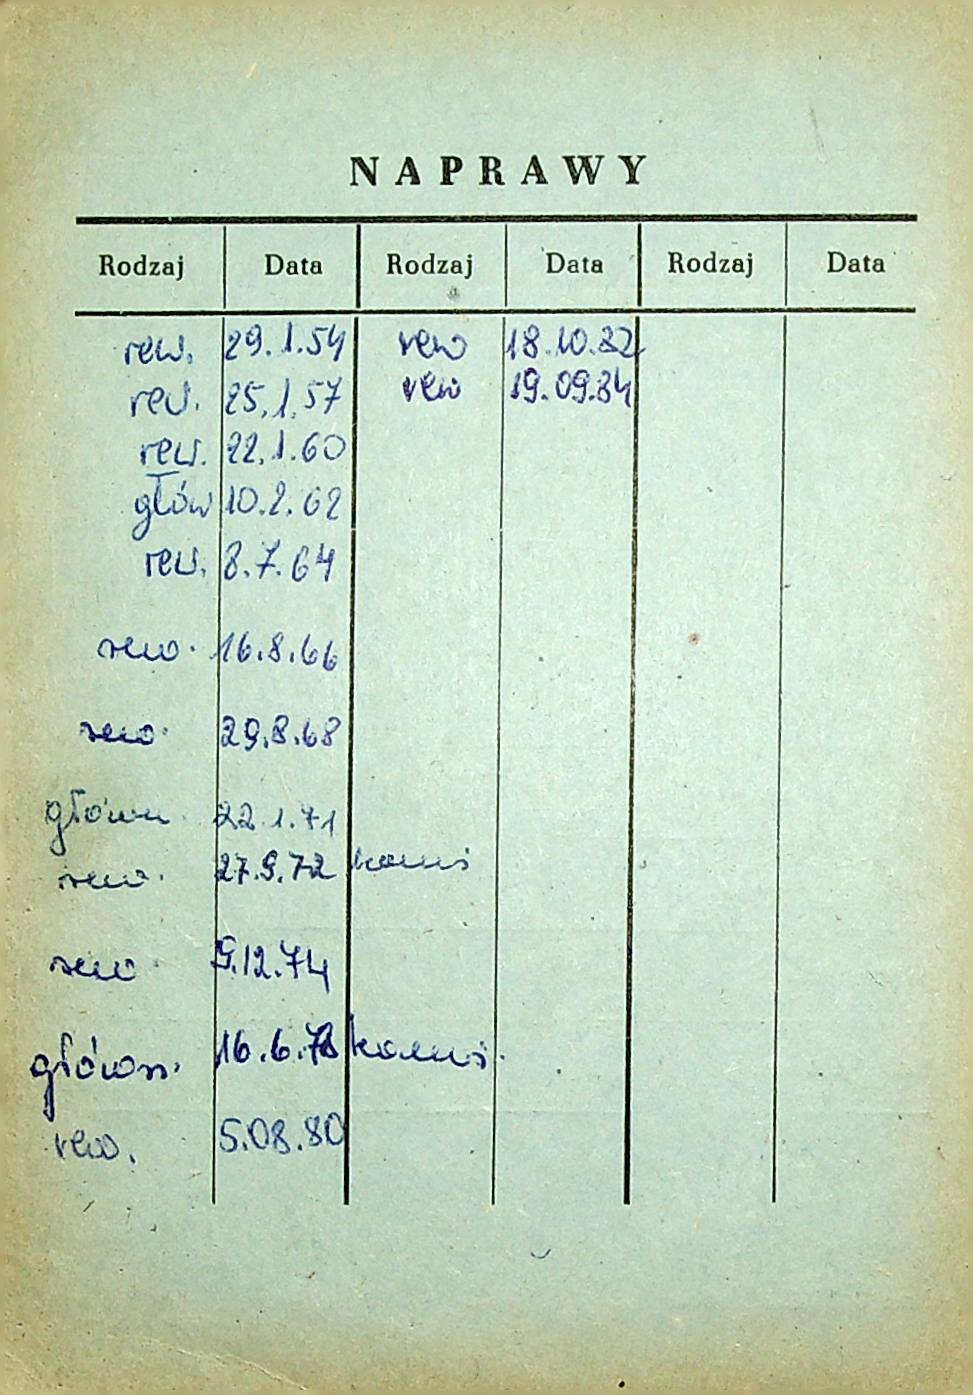 NAPRAWY
Rodzaj Data Rodzaj Data Rodzaj Data
rew. 29.1.54 rew 18.10.82
rew. 25.1.57 rew 19.09.84
rew. 22.1.60
głów 10.2.62
rew. 8.7.64
rew. 16.8.66
rew. 29.8.68
główn. 22.1.71
rew. 27.9.72
rew. 9.12.74
główn. 16.6.78
rew. 5.08.80